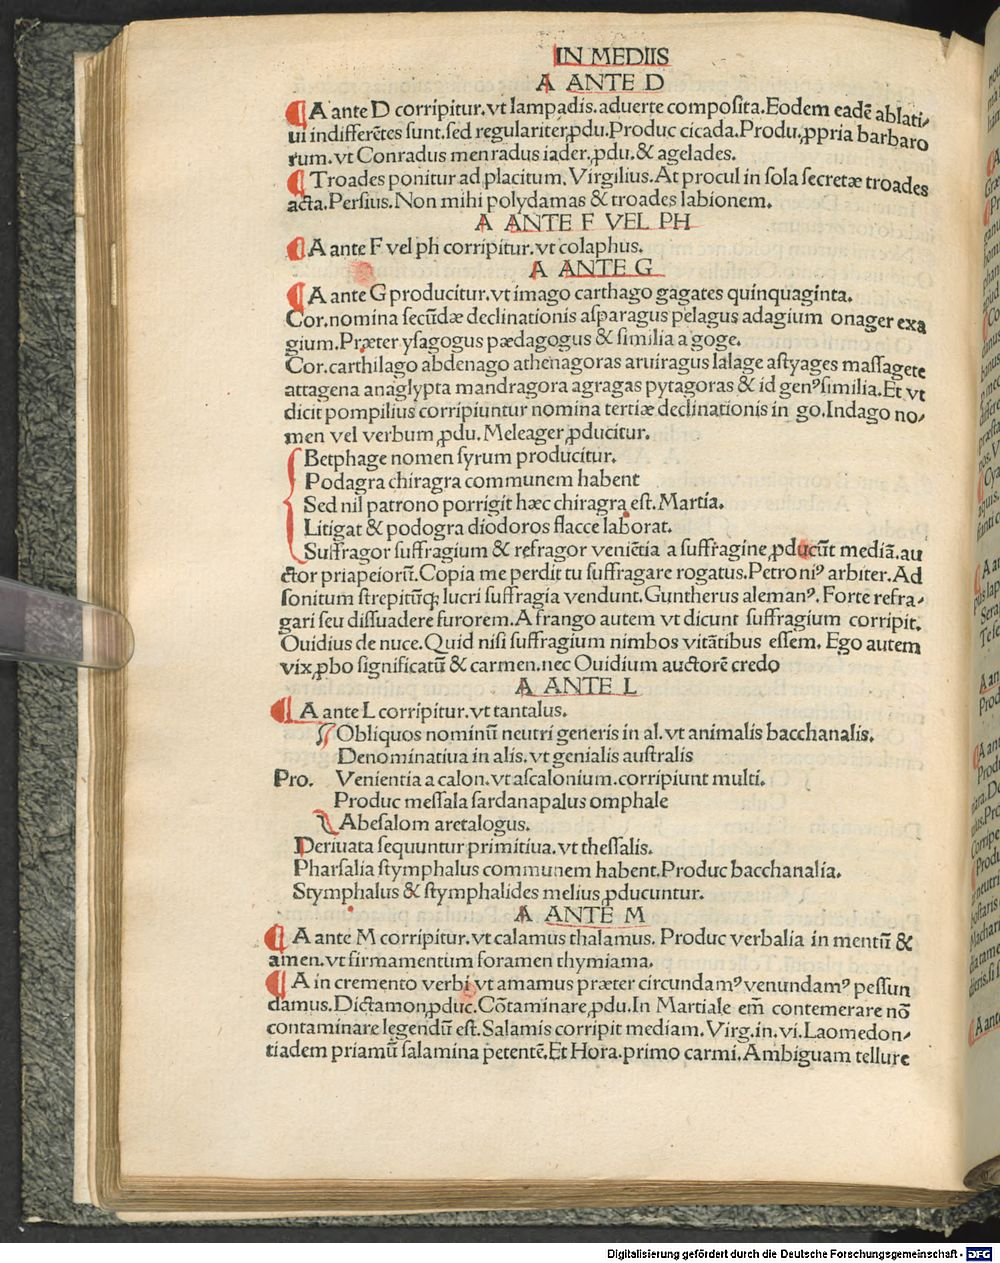 IN MEDIIS
A ANTE D
A ante D corripitur.vt lampadis.aduerte composita.Eodem eadē ablati⸗
ui indifferētes sunt.sed regulariter ꝓdu.Produc cicada.Produ.ꝓpria barbaro
rum.vt Conradus menradus iader.ꝓdu.& agelades.
Troades ponitur ad placitum.Virgilius.At procul in sola secretæ troades
acta.Persius.Non mihi polydamas & troades labionem.
A ANTE F VEL PH
A ante F vel ph corripitur.vt colaphus.
A ANTE G
A ante G producitur.vt imago carthago gagates quinquaginta.
Cor.nomina secūdæ declinationis asparagus pelagus adagium onager exa
gium.Præter ysagogus pædagogus & similia a goge.
Cor.carthilago abdenago athenagoras aruiragus lalage astyages massagete
attagena anaglypta mandragora agragas pytagoras & id genꝰ similia.Et vt
dicit pompilius corripiuntur nomina tertiæ declinationis in go.Indago no⸗
men vel verbum ꝓdu.Meleager ꝓducitur.
Betphage nomen syrum producitur.
Podagra chiragra communem habent
Sed nil patrono porrigit hæc chiragra est.Martia.
Litigat & podogra diodoros flacce laborat.
Suffragor suffragium & refragor veniētia a suffragine ꝓducūt mediā.au
ctor priapeiorū.Copia me perdit tu suffragare rogatus.Petroniꝰ arbiter.Ad
sonitum strepitūꝗ lucri suffragia vendunt.Guntherus alemanꝰ.Forte refra⸗
gari seu dissuadere furorem.A frango autem vt dicunt suffragium corripit.
Ouidius de nuce.Quid nisi suffragium nimbos vitātibus essem.Ego autem
vix ꝓbo significatū & carmen.nec Ouidium auctorē credo
A ANTE L
A ante L corripitur.vt tantalus.
Obliquos nominū neutri generis in al.vt animalis bacchanalis.
Denominatiua in alis.vt genialis australis
Pro. Venientia a calon.vt ascalonium.corripiunt multi.
Produc messala sardanapalus omphale
Abesalom aretalogus.
Deriuata sequuntur primitiua.vt thessalis.
Pharsalia stymphalus communem habent.Produc bacchanalia.
Stymphalus & stymphalides melius ꝓducuntur.
A ANTE M
A ante M corripitur.vt calamus thalamus. Produc verbalia in mentū &
amen.vt firmamentum foramen thymiama.
A in cremento verbi vt amamus præter circundamꝰ venundamꝰ pessun
damus.Dictamon ꝓduc.Cōtaminare ꝓdu.In Martiale em̄ contemerare nō
contaminare legendū est.Salamis corripit mediam.Virg.in.vi.Laomedon⸗
tiadem priamū salamina petentē.Et Hora.primo carmi.Ambiguam tellure
Digitalisierung gefördert durch die Deutsche Forschungsgemeinschaft - DFG